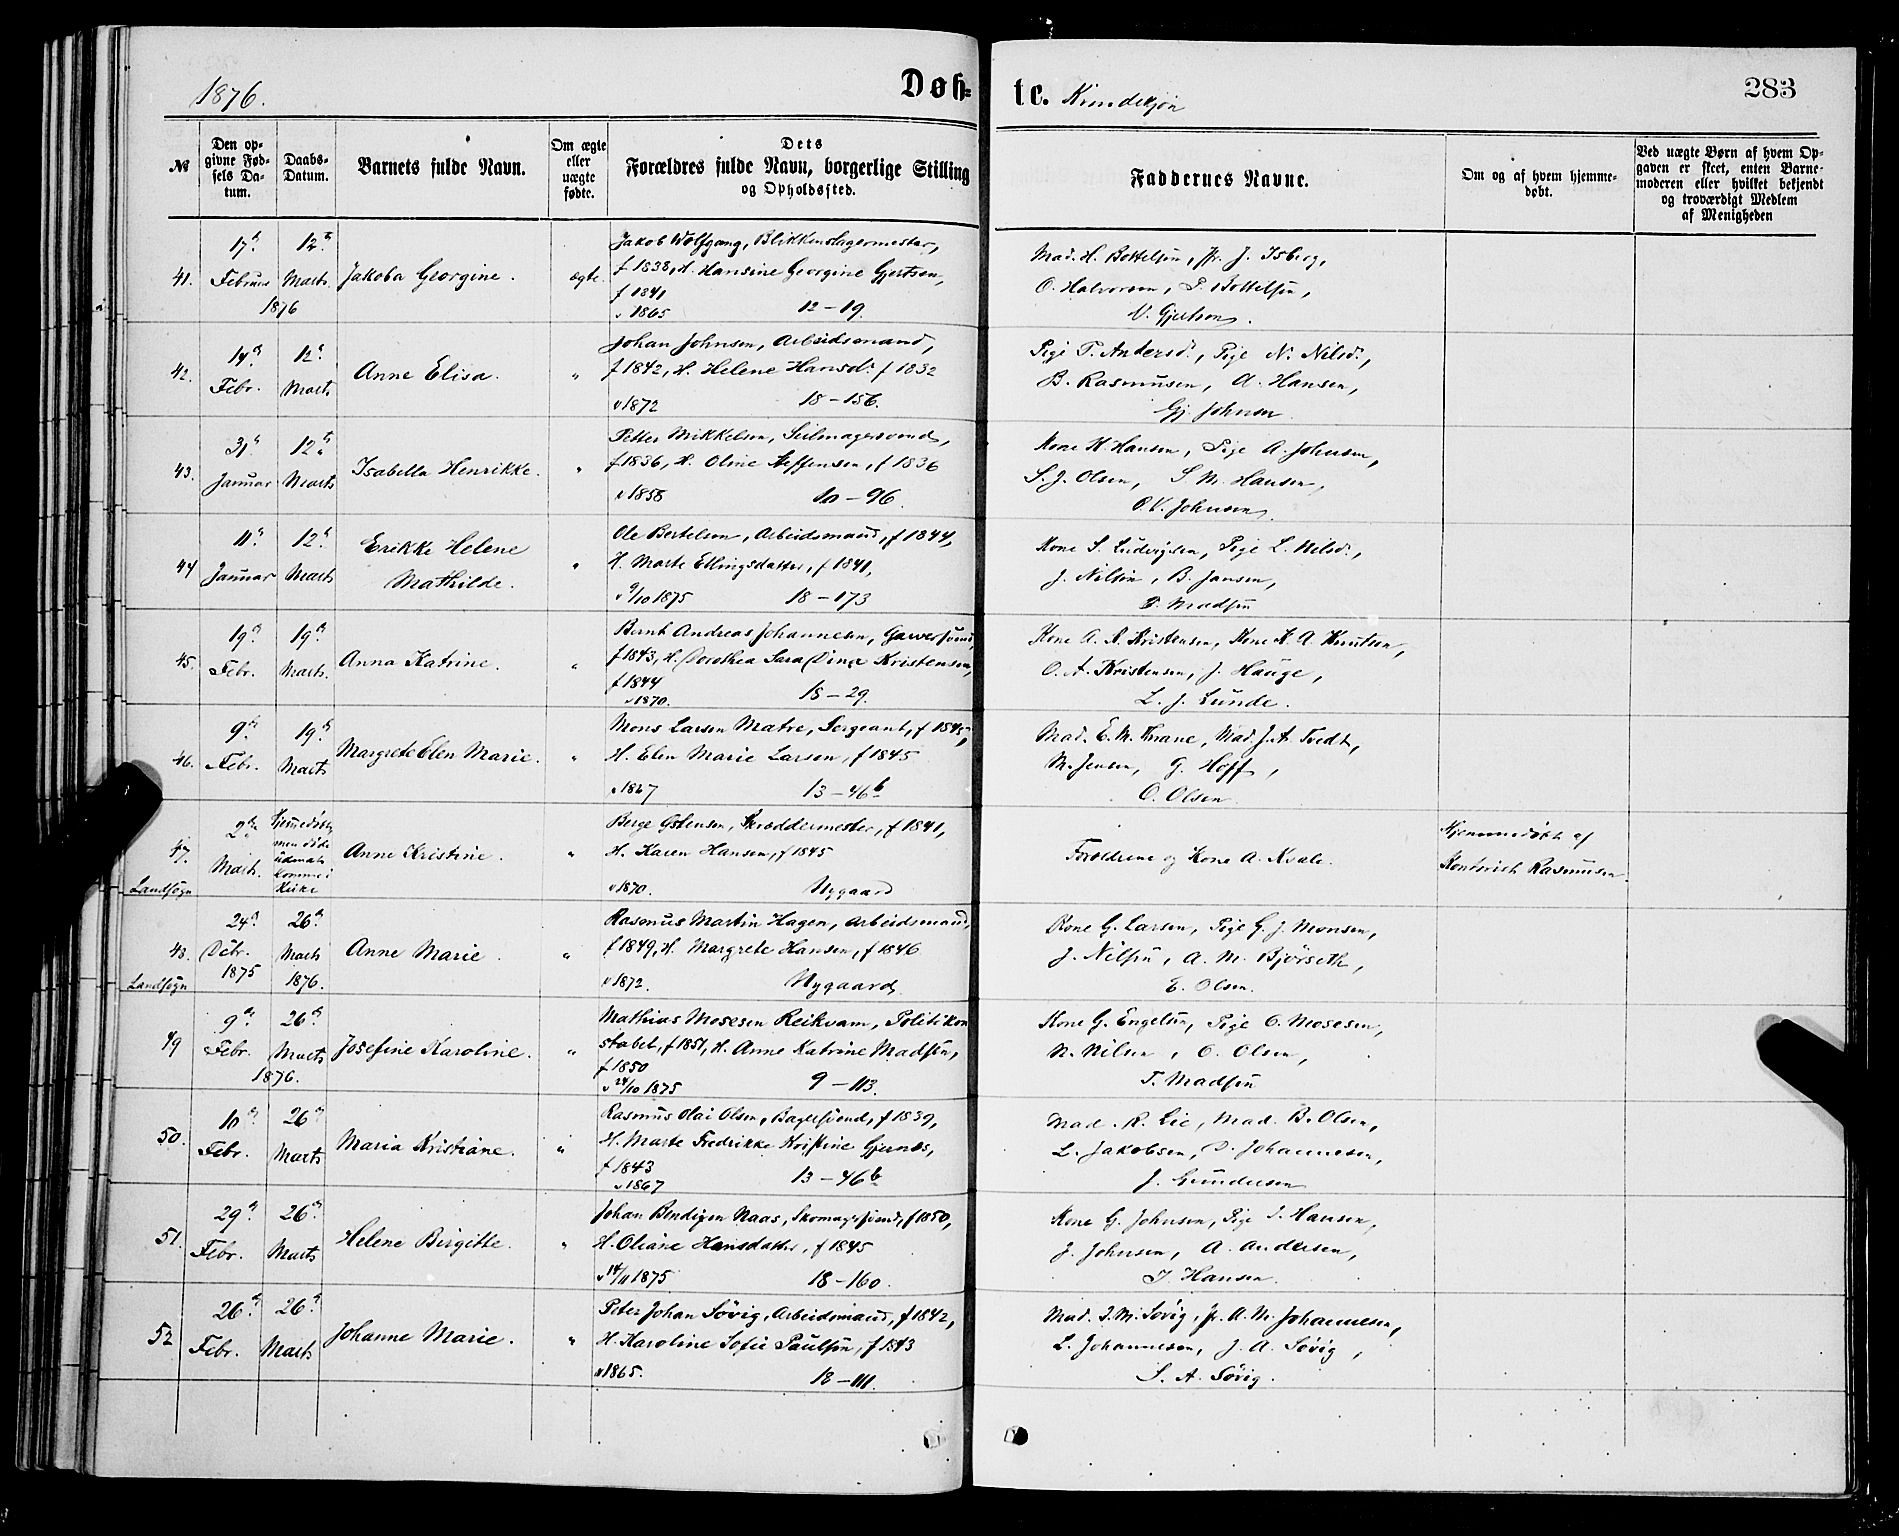 1876.
Døb-
te. Kvindekjøn
283
№
Den op-
givne Fød-
sels Da-
tum.
Daabs-
Datum.
Barnets fulde Navn.
Om ægte
eller
uægte
fødte.
Dets
Forældres fulde Navn, borgerlige Stilling
og Opholdssted.
Faddernes Navne.
Om og af hvem hjemme-
døbt.
Ved uægte Børn af hvem Op-
gaven er skeet, enten Barne-
moderen eller hvilket bekjendt
og troværdigt Medlem
af Menigheden
41.
17de
Februar
12te
Marts
1876
Jakoba Georgine.
ægte.
Jakob Wolfgang, Blikkenslagermester,
f 1838, H. Hansine Georgine Gjertsen,
f 1841
v 1865 12-19.
Mad. H. Bottelsen, Jfr. J. Isberg,
O. Halvorsen, P. Bottelsen,
N. Gjertsen.
42.
14de
Febr.
12te
Marts
Anne Elisa.
"
Johan Johnsen, Arbeidsmand,
f 1842, H. Helene Hansdr. f 1832
v 1872 18-156.
Pige T. Andersd., Pige N. Nilsd.,
B. Rasmusen, A. Hansen,
Gj. Johnsen.
43.
31te
Januar
12te
Marts
Isabella Henrikke.
"
Petter Mikkelsen, Seilmagersvend,
f 1836, H. Oline Steffensen, f 1836
v 1858 10-96.
Kone H. Hansen, Pige A. Johnsen,
S. J. Olsen, S. M. Hansen,
O. V. Johnsen.
44
11te
Januar
12te
Marts
Erikke Helene
Mathilde.
"
Ole Bertelsen, Arbeidsmand, f 1844,
H. Marte Ellingsdatter, f 1841,
v 9/10 1875 18-173
Kone S. Ludvigsen, Pige L. Nilsd.,
J. Nilsen, B. Jansen,
P. Madsen
45.
19de
Febr.
19de
Marts.
Anna Katrine.
"
Bernt Andreas Johannesen, Garversvend,
f 1843, H. Dorothea Sara Dina Kristensen,
f 1844
v 1870. 18-29.
Kone A. A. Kristensen, Kone K. A. Knutsen,
O. A. Kristensen, J. Hauge,
L. J. Lunde.
46.
9de
Febr.
19de
Marts
Margrete Elen Marie.
"
Mons Larsen Matre, Sergeant, f 1845,
H. Elen Marie Larsen, f 1845
v 1867 13-46b
Mad. E. M. Krane, Mad. J. A. Tvedt,
M. Jensen, G. Hoff,
O. Olsen.
47.
Landsogn
2den
Marts.
Hjemmedøbt,
men døde
udenat
komme i
Kirke
Anne Kristine.
"
Berge Ostensen, Skreddermester, f 1841,
H. Karen Hansen, f 1845
v 1870. Nygaard
Forældrene og Kone A. Kvale.
Hjemmedøbt af
Kontorist Rasmusen.
48.
Landsogn
24de
Debr.
1875
26de
Marts
1876.
Anne Marie.
"
Rasmus Martin Hagen, Arbeidsmand,
f 1849, H. Margrete Hansen, f 1846
v 1872. Nygaard.
Kone G. Larsen, Pige G. J. Monsen,
J. Nilsen, A. M. Bjørseth,
E. Olsen.
49
9de
Febr.
26de
Marts
1876.
Josefine Karoline.
"
Mathias Mosesen Reikvam, Politikon
stabel, f 1851, H. Anne Katrine Madsen,
f 1850
v 24/10 1875 9-113.
Kone G. Engelsen, Pige O. Mosesen,
N. Nilsen, O. Olsen,
T. Madsen
50.
10de
Febr.
26de
Marts
Maria Kristiane.
"
Rasmus Olai Olsen, Bagersvend, f 1839,
H. Marte Fredrikke Kristine Gjernes,
f 1843
v 1867 13-46b
Mad. R. Lie, Mad. B. Olsen,
L. Jakobsen, D. Johannesen,
J. Gundersen
51.
29de
Febr.
26de
Marts
Helene Birgitte.
"
Johan Bendigsen Naas, Skomagersvend, f 1850,
H. Oliane Hansdatter, f 1845
v 14/11 1875 18-160.
Kone G. Johnsen, Pige I. Hansen,
J. Johnsen, A. Andersen,
I. Hansen.
52
26de
Febr.
26de
Marts
Johanne Marie.
"
Peter Johan Søvig, Arbeidsmand, f 1842,
H. Karoline Sofie Paulsen, f 1843
v 1865. 18-111.
Mad. I. M. Søvig, Jfr. A. M. Johannesen,
L. Johannesen, J. A. Søvig,
S. A. Søvig.